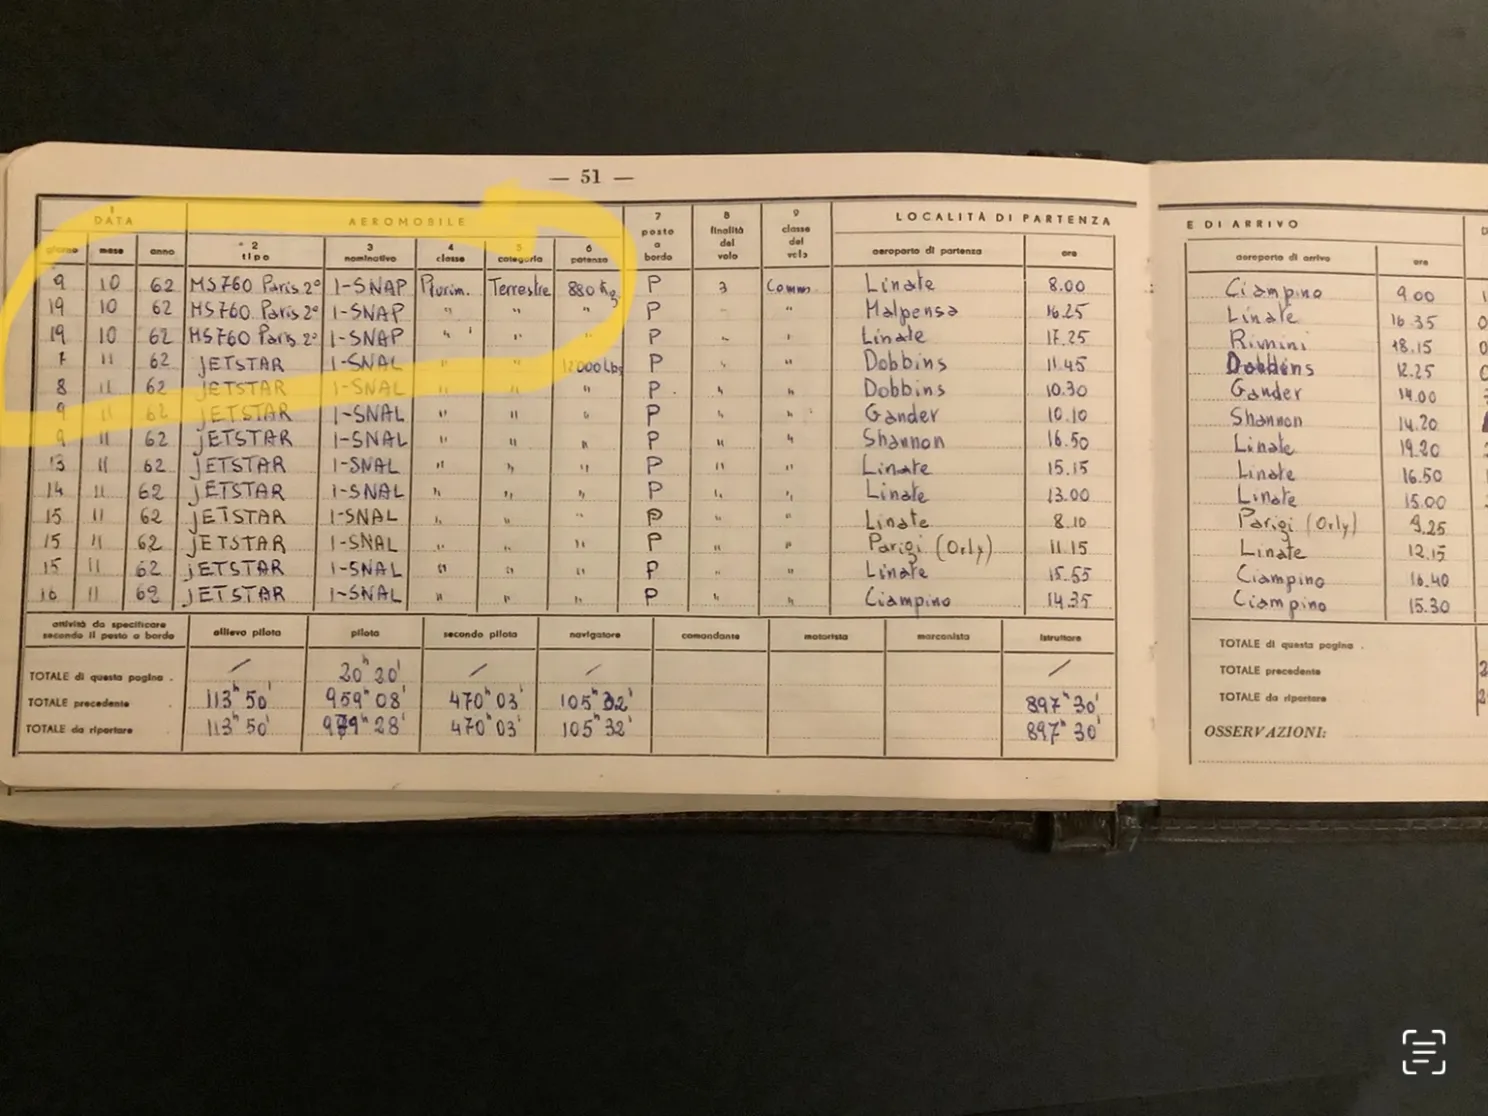 — 51 —
1 DATA AEROMOBILE 7 posto a bordo 8 finalità del volo 9 classe del volo LOCALITÀ DI PARTENZA E DI ARRIVO
giorno mese anno 2 tipo 3 nominativo 4 classe 5 categoria 6 potenza aeroporto di partenza ora aeroporto di arrivo ora
9 10 62 MS760 Paris 2° I-SNAP Plurim. Terrestre 880 Kg P 3 Comm. Linate 8.00 Ciampino 9.00
19 10 62 MS760 Paris 2° I-SNAP " " " P " " Malpensa 16.25 Linate 16.35
19 10 62 MS760 Paris 2° I-SNAP " " " P " " Linate 17.25 Rimini 18.15
7 11 62 JETSTAR I-SNAL " " 12000 Lbs P " " Dobbins 11.45 Dobbins 12.25
8 11 62 JETSTAR I-SNAL " " " P " " Dobbins 10.30 Gander 14.00
9 11 62 JETSTAR I-SNAL " " " P " " Gander 10.10 Shannon 14.20
9 11 62 JETSTAR I-SNAL " " " P " " Shannon 16.50 Linate 19.20
13 11 62 JETSTAR I-SNAL " " " P " " Linate 15.15 Linate 16.50
14 11 62 JETSTAR I-SNAL " " " P " " Linate 13.00 Linate 15.00
15 11 62 JETSTAR I-SNAL " " " P " " Linate 8.10 Parigi (Orly) 9.25
15 11 62 JETSTAR I-SNAL " " " P " " Parigi (Orly) 11.15 Linate 12.15
15 11 62 JETSTAR I-SNAL " " " P " " Linate 15.55 Ciampino 16.40
16 11 62 JETSTAR I-SNAL " " " P " " Ciampino 14.35 Ciampino 15.30
attività da specificare secondo il posto a bordo allievo pilota pilota secondo pilota navigatore comandante motorista marconista istruttore
TOTALE di questa pagina . / 20h 20' / / / TOTALE di questa pagina .
TOTALE precedente 113h 50' 959h 08' 470h 03' 105h 32' 897h 30' TOTALE precedente
TOTALE da riportare 113h 50' 979h 28' 470h 03' 105h 32' 897h 30' TOTALE da riportare
OSSERVAZIONI: